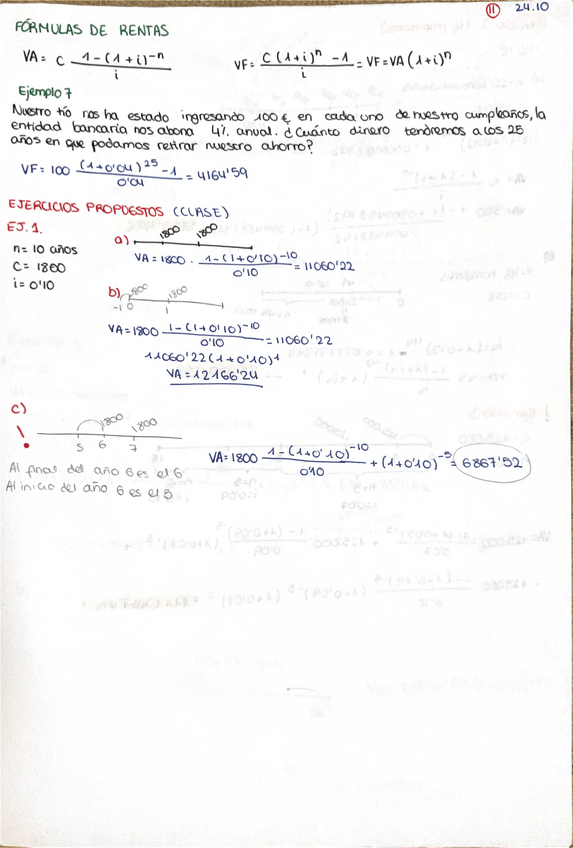 11 24.10
FÓRMULAS DE RENTAS
VA = C 1-(1+i)^-n / i    VF = C(1+i)^n -1 / i = VF = VA(1+i)^n
Ejemplo 7
Nuestro tío nos ha estado ingresando 100€ en cada uno de nuestro cumpleaños, la
entidad bancaria nos abona 4% anual. ¿Cuánto dinero tendremos a los 25
años en que podamos retirar nuestro ahorro?
VF = 100 (1+0'04)^25 -1 / 0'04 = 4164'59
EJERCICIOS PROPUESTOS (CLASE)
EJ. 1.
n = 10 años
C = 1800
i = 0'10
a) 1800 1800
VA = 1800 · 1-(1+0'10)^-10 / 0'10 = 11060'22
b) 1800 1800
-1 0 1
VA = 1800 1-(1+0'10)^-10 / 0'10 = 11060'22
11060'22(1+0'10)^1
VA = 12166'24
c) 1800 1800
! 5 6 7
Al final del año 6 es el 6
Al inicio del año 6 es el 5
VA = 1800 1-(1+0'10)^-10 / 0'10 + (1+0'10)^-5 = 6867'52